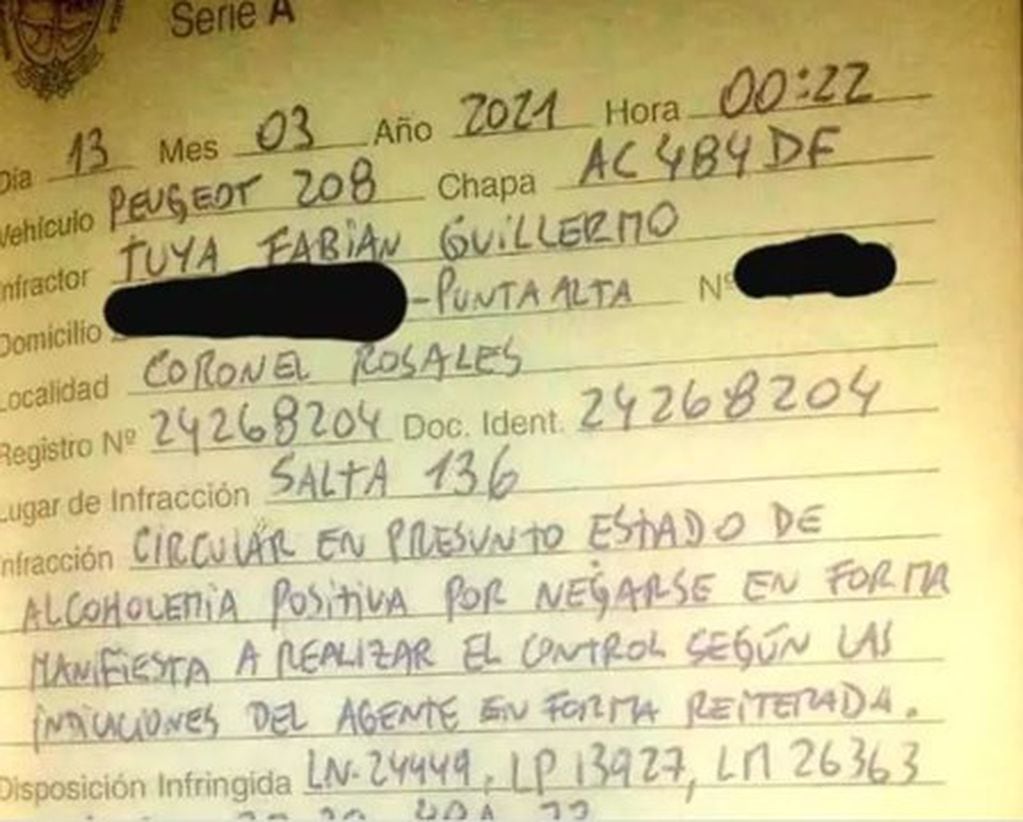 Serie A
Día 13 Mes 03 Año 2021 Hora 00:22
Vehículo PEUGEOT 208 Chapa AC484DF
Infractor TUYA FABIAN GUILLERMO
Domicilio -PUNTA ALTA Nº
Localidad CORONEL ROSALES
Registro Nº 24268204 Doc. Ident. 24268204
Lugar de Infracción SALTA 136
Infracción CIRCULAR EN PRESUNTO ESTADO DE
ALCOHOLEMIA POSITIVA POR NEGARSE EN FORMA
MANIFIESTA A REALIZAR EL CONTROL SEGÚN LAS
DEL AGENTE EN FORMA REITERADA.
Disposición Infringida LN-24449, LP 13927, LM 26363